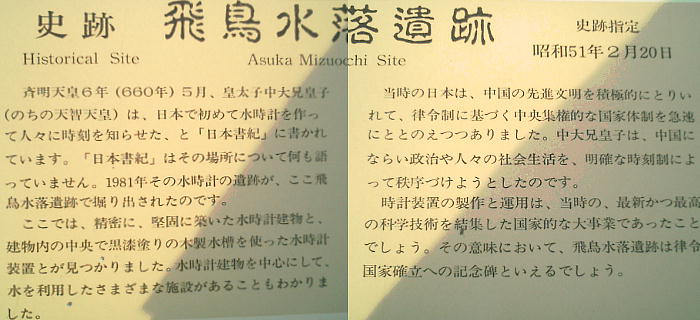 史跡 飛鳥水落遺跡
Historical Site Asuka Mizuochi Site
史跡指定
昭和51年2月20日
斉明天皇6年(660年)5月、皇太子中大兄皇子
(のちの天智天皇)は、日本で初めて水時計を作っ
て人々に時刻を知らせた、と「日本書紀」に書かれ
ています。「日本書紀」はその場所について何も語
っていません。1981年その水時計の遺跡が、ここ飛
鳥水落遺跡で掘り出されたのです。
ここでは、精密に、堅固に築いた水時計建物と、
建物内の中央で黒漆塗りの木製水槽を使った水時計
装置とが見つかりました。水時計建物を中心にして、
水を利用したさまざまな施設があることもわかりま
した。
当時の日本は、中国の先進文明を積極的にとりい
れて、律令制に基づく中央集権的な国家体制を急速
にととのえつつありました。中大兄皇子は、中国に
ならい政治や人々の社会生活を、明確な時刻制によ
って秩序づけようとしたのです。
時計装置の製作と運用は、当時の、最新かつ最高
の科学技術を結集した国家的な大事業であったこと
でしょう。その意味において、飛鳥水落遺跡は律令
国家確立への記念碑といえるでしょう。